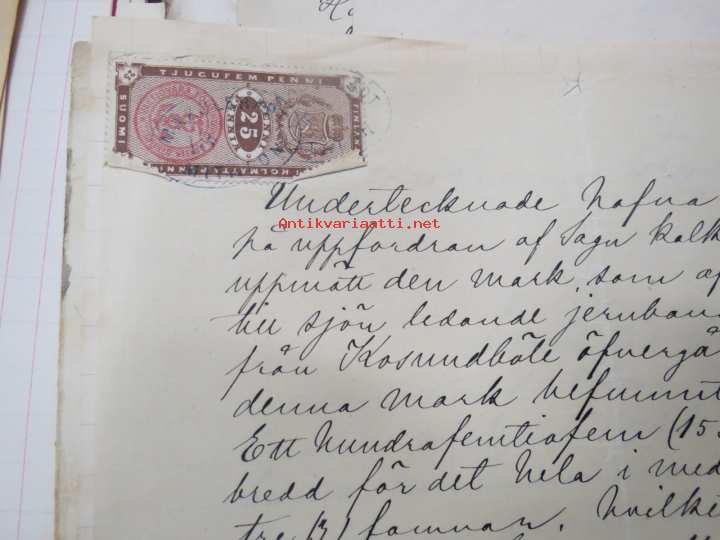 TJUGUFEM PENNI
SUOMI
25
PENNIÄ
FINLAND
Undertecknade hafva
Antikvariaatti.net
på uppfordran af Sagu kalk
uppmätt den mark, som
till sjön ledande jernban
från Kosundböle öfvergå
denna mark befunnit
Ett hundrafemtiofem (15
bredd för det hela i med
tre (3) famnar, hvilke